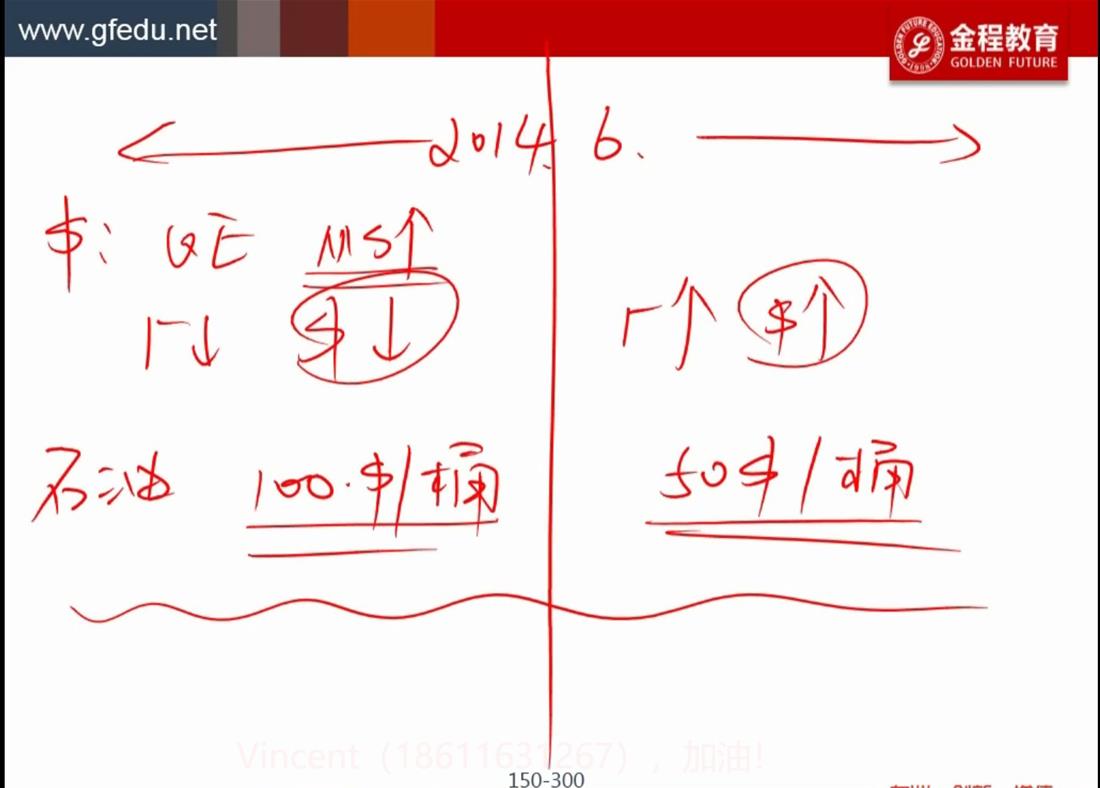 www.gfedu.net
金程教育
GOLDEN FUTURE
2014. 6.
$: QE MS↑
r↓ $↓ r↑ $↑
石油 100.$/桶 50$/桶
Vincent（18611631267），加油！
150-300